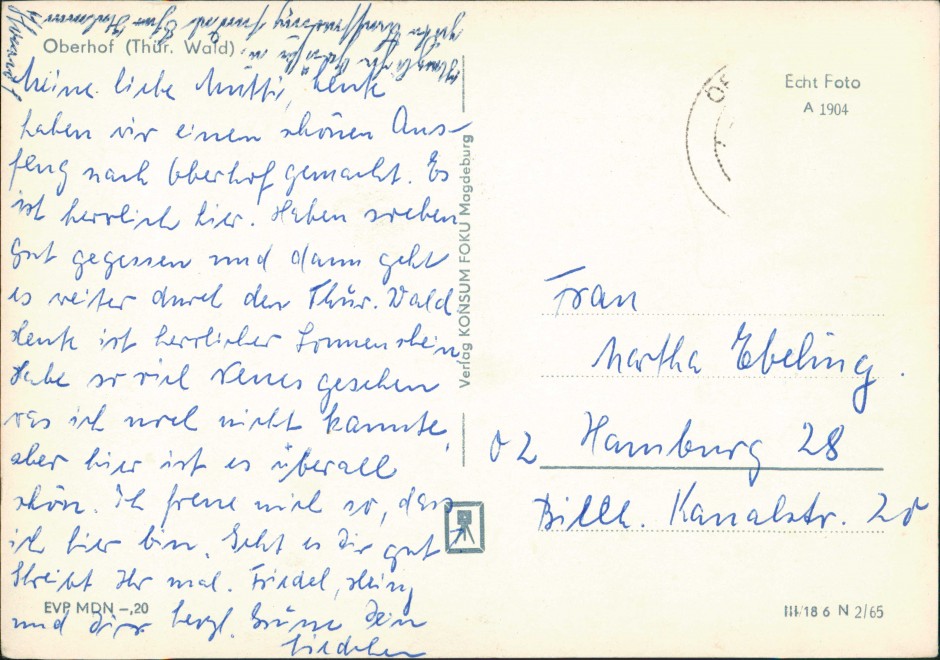 Oberhof (Thür. Wald)
Meine liebe Mutti, heute
haben wir einen schönen Aus-
flug nach Oberhof gemacht. Es
ist herrlich hier. Haben soeben
gut gegessen und dann geht
es weiter durch den Thür. Wald
Heute ist herrlicher Sonnenschein
Habe so viel Neues gesehen
was ich noch nicht kannte,
aber hier ist es überall
schön. Ich freue mich so, dass
ich hier bin. Geht es Dir gut
Schreibt Ihr mal. Friedel, Heinz
und Dir herzl. Grüße Dein
EVP MDN –,20
Verlag KONSUM FOKU Magdeburg
Echt Foto
A 1904
Frau
Martha Ebeling.
02 Hamburg 28
Billh. Kanalstr. 20
III/18 6 N 2/65